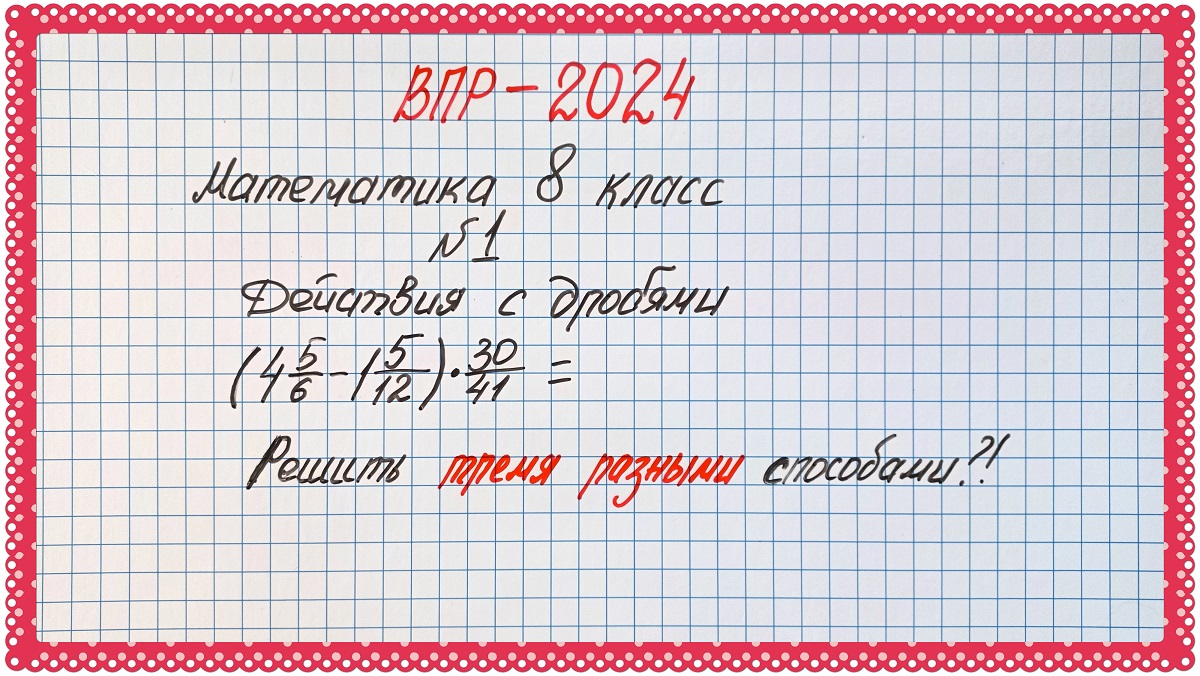 ВПР-2024
Математика 8 класс
№1
Действия с дробями
(4 5/6 - 1 5/12) · 30/41 =
Решить тремя разными способами?!